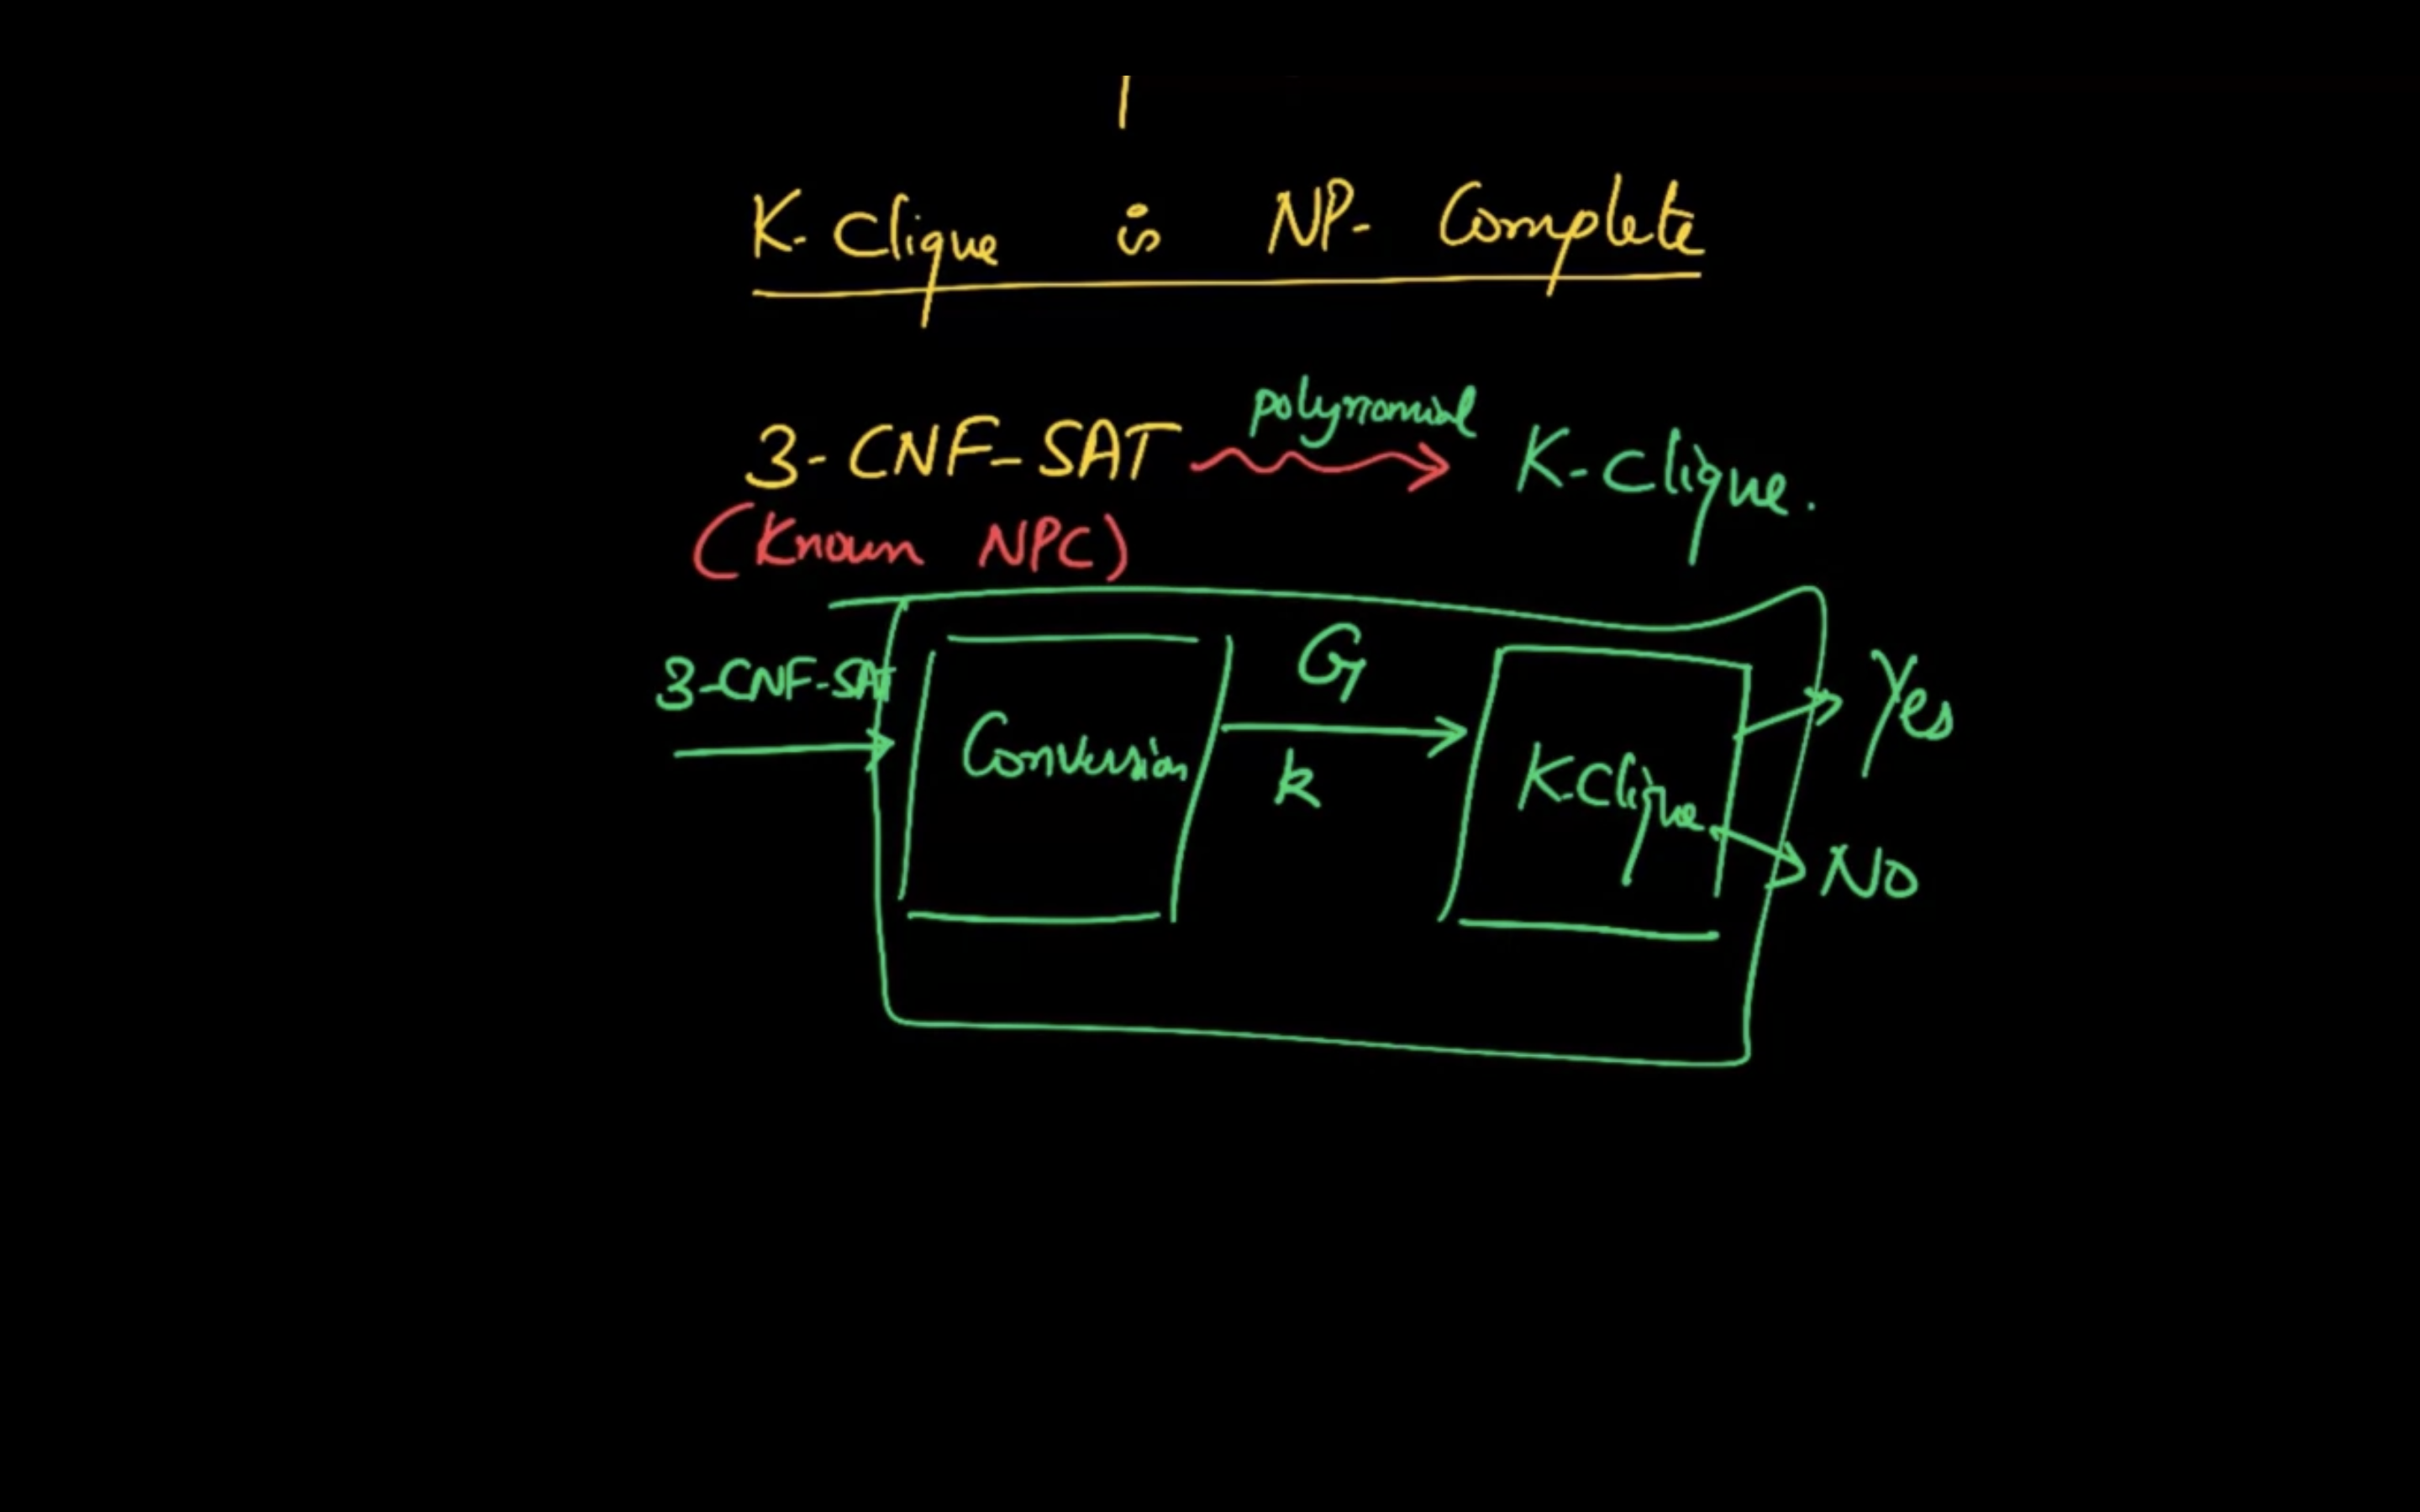 K-Clique is NP-Complete
3-CNF-SAT polynomial K-Clique.
(Known NPC)
3-CNF-SAT
Conversion
G
k
K-Clique
Yes
No